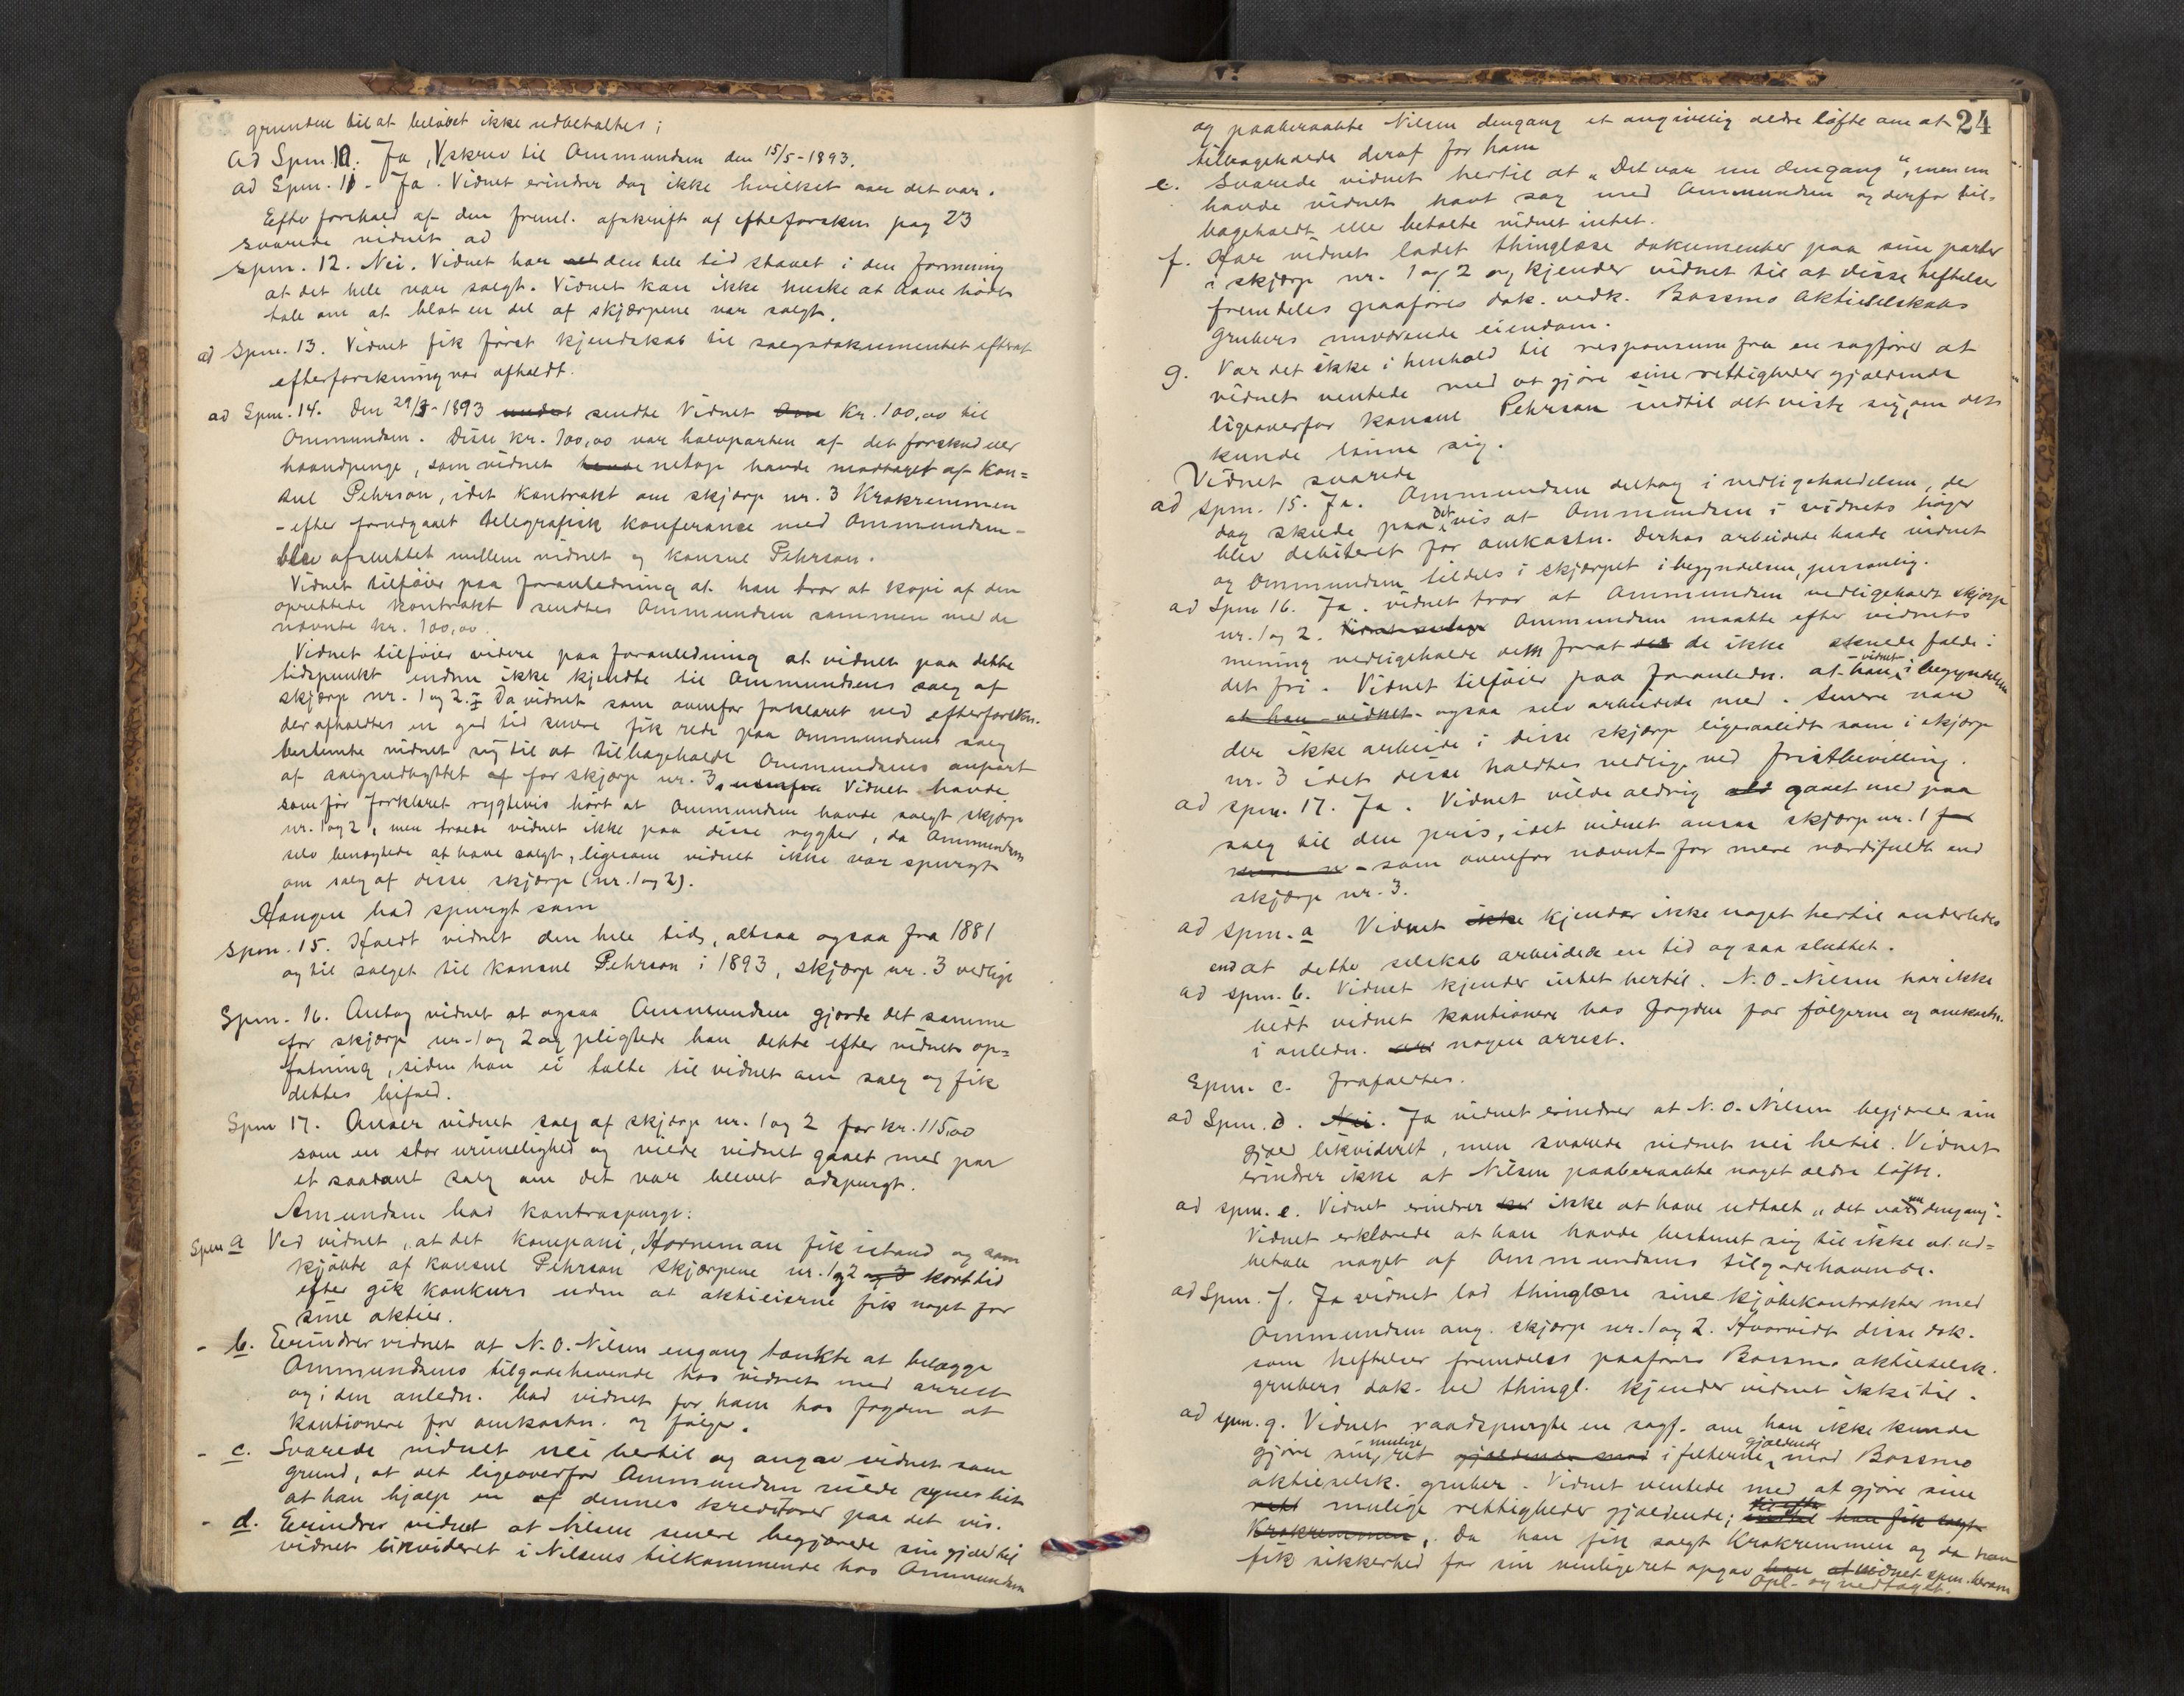 grunden til at beløbet ikke udbetaltes;
ad Spm. 10. Ja, V. skrev til Ammundsen den 15/5-1893.
ad Spm. 11 - Ja. Vidnet erindrer dog ikke hvilket aar det var.
Efter forehold af den freml. afskrift af efterforskn. pag 23
svarede vidnet ad
Spm. 12. Nei. Vidnet har den hele tid staaet i den formening
at det hele var solgt. Vidnet kan ikke huske at have hørt
tale om at blot en del af skjærpene var solgt.
ad Spm. 13. Vidnet fik først kjendskab til salgsdokumentet efterat
efterforskning var afholdt.
ad Spm. 14. Den 29/3-1893 sendte Vidnet Kr. 100,00 til
Ammundsen. Disse Kr. 100,00 var halvparten af det forskud eller
haandpenge, som vidnet netop havde modtaget af Kon=
sul Pehrson, idet kontrakt om skjærp nr. 3 Krokremmen
- efter forudgaaet telegrafisk konferance med Ammundsen -
blev afsluttet mellem vidnet og konsul Pehrson.
Vidnet tilføier paa foranledning at han tror at kopi af den
oprettede kontrakt sendtes Ammundsen sammen med de
nævnte kr. 100,00.
Vidnet tilføier videre paa foranledning at vidnet paa dette
tidspunkt endnu ikke kjendte til Ammundsens salg af
skjærp nr. 1 og 2. Da vidnet som ovenfor forklaret ved efterforskn.
der afholdtes en god tid senere fik rede paa Ammundsens salg
bestemte vidnet sig til at tilbageholde Ammundsens anpart
af salgsudbyttet af for skjærp nr. 3, Vidnet havde
som før forklaret rygtevis hørt at Ammundsen havde solgt skjærp
nr. 1 og 2, men troede vidnet ikke paa disse rygter, da Ammundsen
selv benægtede at have solgt, ligesom vidnet ikke var spurgt
om salg af disse skjærp (nr. 1 og 2).
Haugen bad spurgt som
Spm. 15. Holdt vidnet den hele tid, altsaa ogsaa fra 1881
og til salget til konsul Pehrson i 1893, skjærp nr. 3 vedlige
Spm. 16. Antog vidnet at ogsaa Ammundsen gjorde det samme
for skjærp nr. 1 og 2 og pligtede han dette efter vidnets op=
fatning, siden han ei talte til vidnet om salg og fik
dettes bifald.
Spm 17. Anser vidnet salg af skjærp nr. 1 og 2 for kr. 115,00
som en stor urimelighed og vilde vidnet gaaet med paa
et saadant salg om det var blevet adspurgt.
Amundsen bad kontraspurgt:
Spm a Ved vidnet, at det kompani, Horneman fik istand og som
kjøbte af konsul Pehrson skjærpene nr. 1 og 2 og 3 kort tid
efter gik konkurs uden at aktieierne fik noget for
sine aktier.
- b. Erindrer vidnet at N. O. Nilsen engang tænkte at belægge
Ammundsens tilgodehavende hos vidnet med arrest
og i den anledn. bad vidnet for ham hos fogden at
kautionere for omkostn. og følger.
- c. Svarede vidnet nei hertil og angav vidnet som
grund, at det ligeoverfor Ammundsen vilde synes lidt
at han hjalp en af dennes kreditorer paa det vis.
- d. Erindrer vidnet at Nilsen senere begjærede sin gjæld til
vidnet likvideret i Nilsens tilkommende hos Ammundsen
24
og paaberaabte Nilsen dengang et angivelig ældre løfte om at
tilbageholde deraf for ham
e. Svarede vidnet hertil at "Det var nu dengang", men nu
havde vidnet havt sag med Ammundsen og derfor til=
bageholdt eller betalte vidnet intet.
f. Har vidnet ladet thinglæse dokumenter paa sine parter
i skjærp nr. 1 og 2 og kjender vidnet til at disse heftelser
fremdeles paaføres dok. vedk. Bossmo Aktieselskabs
Grubers nuværende eiendom.
g. Var det ikke i henhold til responsum fra en sagfører at
vidnet ventede med at gjøre sine rettigheder gjældende
ligeoverfor konsul Pehrson indtil det viste sig, om det
kunde lønne sig.
Vidnet svarede
ad spm. 15. Ja. Ammundsen deltog i vedligeholdelsen, der
dog skede paa det vis at Ammundsen i vidnets bøger
blev debiteret for omkostn. Derhos arbeidede baade vidnet
og Ammundsen tildels i skjærpet i begyndelsen, personlig.
ad Spm 16. Ja. vidnet tror at Ammundsen vedligeholdt skjærp
nr. 1 og 2. Ammundsen maatte efter vidnets
mening vedligeholde dem forat de ikke skulde falde i
det fri. Vidnet tilføier paa foranledn. at han - vidnet - i begyndelsen
at han - vidnet - ogsaa selv arbeidede med. Senere var
der ikke arbeide i disse skjærp ligesaalidt som i skjærp
nr. 3 idet disse holdtes vedlige ved fristbevilling.
ad spm. 17. Ja. Vidnet vilde aldrig gaaet med paa
salg til den pris, idet vidnet ansaa skjærp nr. 1
- som ovenfor nævnt - for mere værdifuldt end
skjærp nr. 3.
ad spm. a Vidnet ikke kjender ikke noget hertil anderledes
end at dette selskab arbeidede en tid og saa sluttet.
ad spm. b. Vidnet kjender intet hertil. N. O. Nilsen har ikke
bedt vidnet kautionere hos fogden for følgerne og omkostn.
i anledn. nogen arrest.
Spm. c. frafaldtes.
ad Spm. d. Nei. Ja vidnet erindrer at N. O. Nilsen begjærede sin
gjæld likvideret, men svarede vidnet nei hertil. Vidnet
erindrer ikke at Nilsen paaberaabte noget ældre løfte.
ad spm. e. Vidnet erindrer ikke at have udtalt "det var nu dengang".
Vidnet erklærede at han havde bestemt sig til ikke at ud=
betale noget af Ammundsens tilgodehavende.
ad Spm. f. Ja vidnet lod thinglæse sine kjøbekontrakter med
Ammundsen ang. skjærp nr. 1 og 2. Hvorvidt disse dok.
som heftelser fremdeles paaføres Bossmo aktieselsk.
grubers dok. ved thingl. kjender vidnet ikke til.
ad spm. g. Vidnet raadspurgte en sagf. om han ikke kunde
gjøre sin mulige ret gjældende mod i felterne gjældende mod Bossmo
aktieselsk. gruber. Vidnet ventede med at gjøre sine
mulige rettigheder gjældende; han fik solgt
Krokremmen. Da han fik solgt Krokremmen og da han
fik sikkerhed for sin muligeret opgav han at vidnet spm. herom
Opl. og vedtaget.